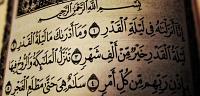 بِسْمِ اللَّهِ الرَّحْمَٰنِ الرَّحِيمِ
إِنَّا أَنزَلْنَاهُ فِي لَيْلَةِ الْقَدْرِ ۝١ وَمَا أَدْرَاكَ مَا لَيْلَةُ
الْقَدْرِ ۝٢ لَيْلَةُ الْقَدْرِ خَيْرٌ مِّنْ أَلْفِ شَهْرٍ ۝٣
تَنَزَّلُ الْمَلَائِكَةُ وَالرُّوحُ فِيهَا
بِإِذْنِ رَبِّهِم مِّن كُلِّ أَمْرٍ ۝٤ سَلَامٌ هِيَ حَتَّىٰ مَطْلَعِ الْفَجْرِ ۝٥